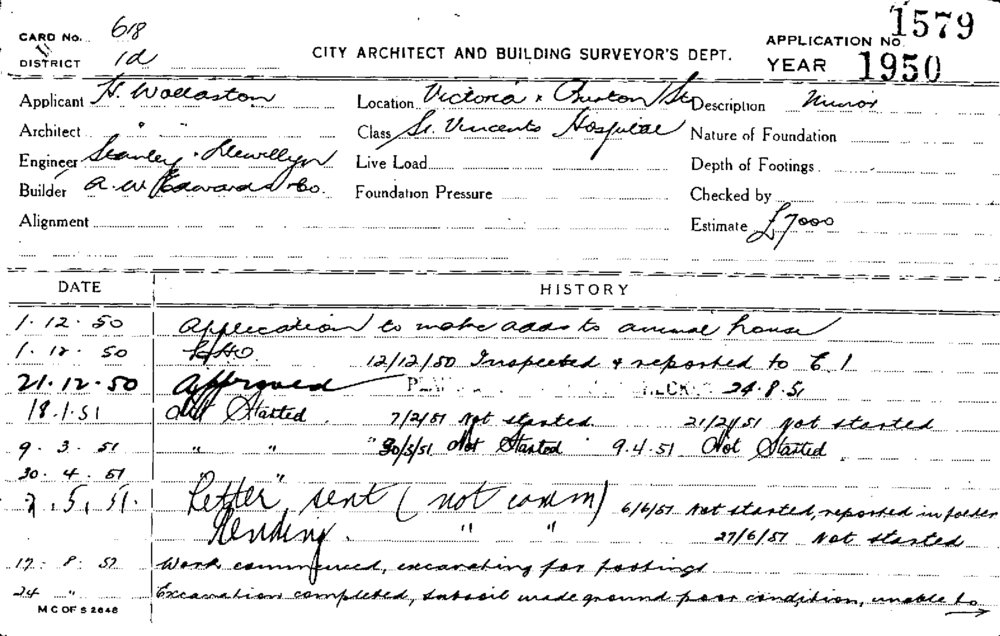 CARD No. 618
DISTRICT 1d
CITY ARCHITECT AND BUILDING SURVEYOR'S DEPT.
APPLICATION No. 1579
YEAR 1950
Applicant H. Wollaston Location Victoria & Burton Sts Description Minor
Architect " " Class St. Vincents Hospital Nature of Foundation
Engineer Stanley & Llewellyn Live Load Depth of Footings
Builder A. W. Edwards & Co. Foundation Pressure Checked by
Alignment Estimate £7000
DATE HISTORY
1.12.50 Application to make adds to animal house
1.12.50 12/12/50 Inspected & reported to C.I
21.12.50 Approved 24.8.51
18.1.51 Not Started 7/2/51 Not started. 21/2/51 Not started
9.3.51 " " " 30/3/51 Not Started 9.4.51 Not Started.
30.4.51 "
7.5.51. Letter sent (not comm) 6/6/51 Not started, reported in folder
Pending. " " 27/6/51 Not started
17.8.51 Work commenced, excavating for footings
24 " Excavation completed, subsoil made ground poor condition, unable to →
M C OF S 2646